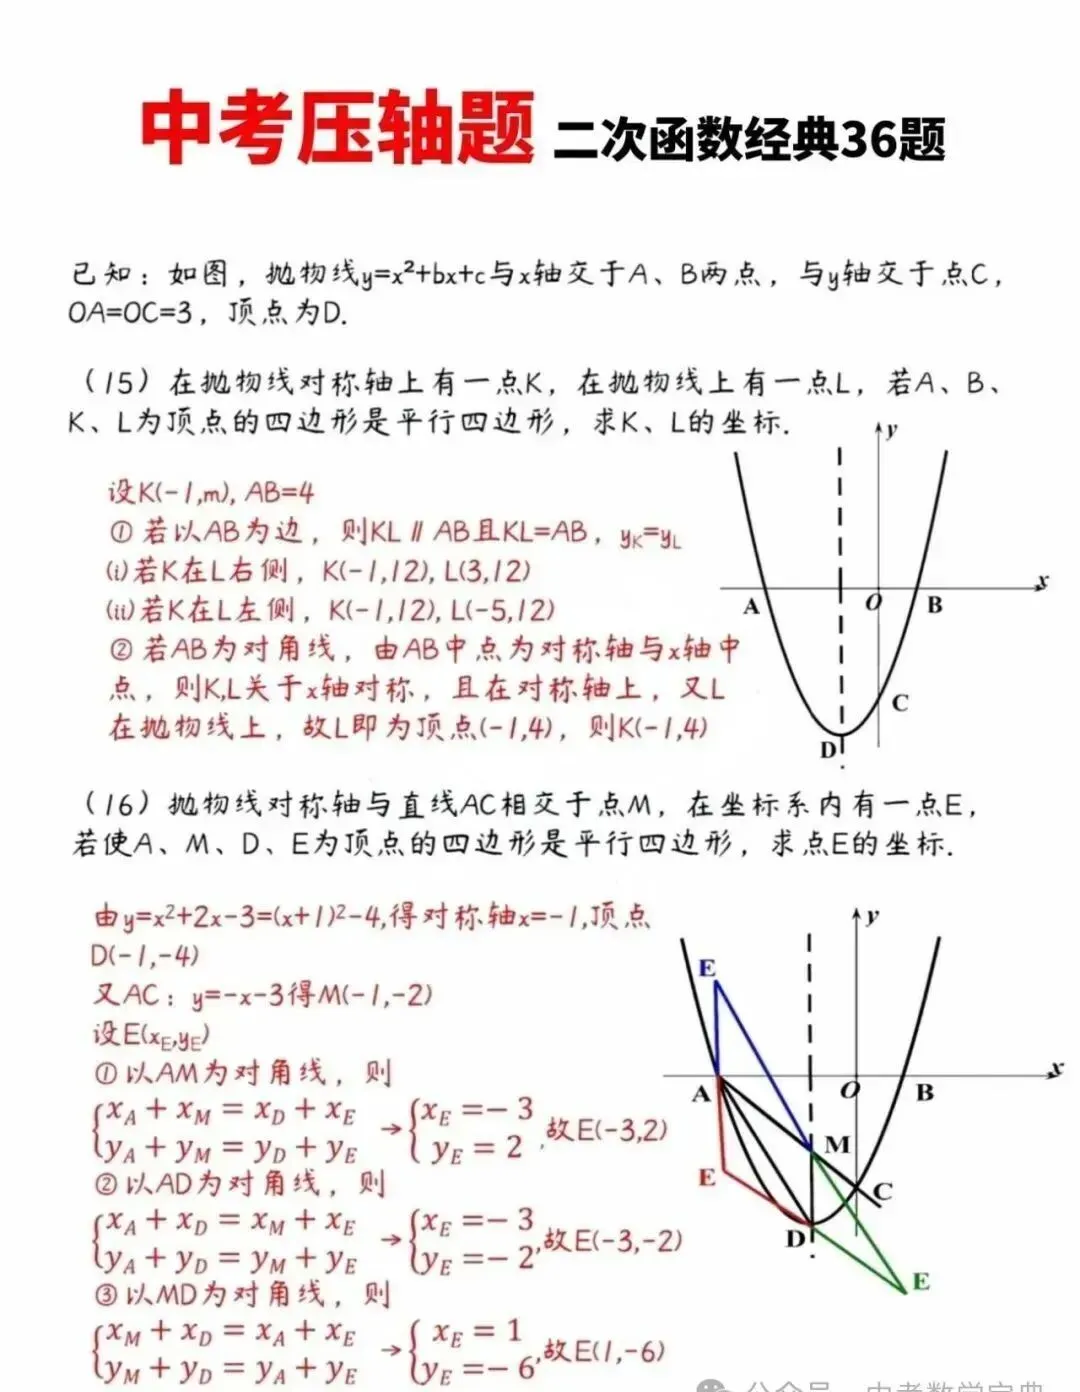 中考压轴题 二次函数经典36题
已知：如图，抛物线y=x²+bx+c与x轴交于A、B两点，与y轴交于点C，
OA=OC=3，顶点为D.
（15）在抛物线对称轴上有一点K，在抛物线上有一点L，若A、B、
K、L为顶点的四边形是平行四边形，求K、L的坐标.
设K(-1,m), AB=4
①若以AB为边，则KL∥AB且KL=AB，y_K=y_L
(i)若K在L右侧，K(-1,12), L(3,12)
(ii)若K在L左侧，K(-1,12), L(-5,12)
②若AB为对角线，由AB中点为对称轴与x轴中
点，则K,L关于x轴对称，且在对称轴上，又L
在抛物线上，故L即为顶点(-1,4)，则K(-1,4)
y
x
A
O
B
C
D
（16）抛物线对称轴与直线AC相交于点M，在坐标系内有一点E，
若使A、M、D、E为顶点的四边形是平行四边形，求点E的坐标.
由y=x²+2x-3=(x+1)²-4,得对称轴x=-1,顶点
D(-1,-4)
又AC：y=-x-3得M(-1,-2)
设E(x_E,y_E)
①以AM为对角线，则
{x_A + x_M = x_D + x_E → {x_E = -3
{y_A + y_M = y_D + y_E {y_E = 2 ,故E(-3,2)
②以AD为对角线，则
{x_A + x_D = x_M + x_E → {x_E = -3
{y_A + y_D = y_M + y_E {y_E = -2 ,故E(-3,-2)
③以MD为对角线，则
{x_M + x_D = x_A + x_E → {x_E = 1
{y_M + y_D = y_A + y_E {y_E = -6 ,故E(1,-6)
y
E
x
A
O
B
M
E
C
D
E
公众号 · 中考数学宝典